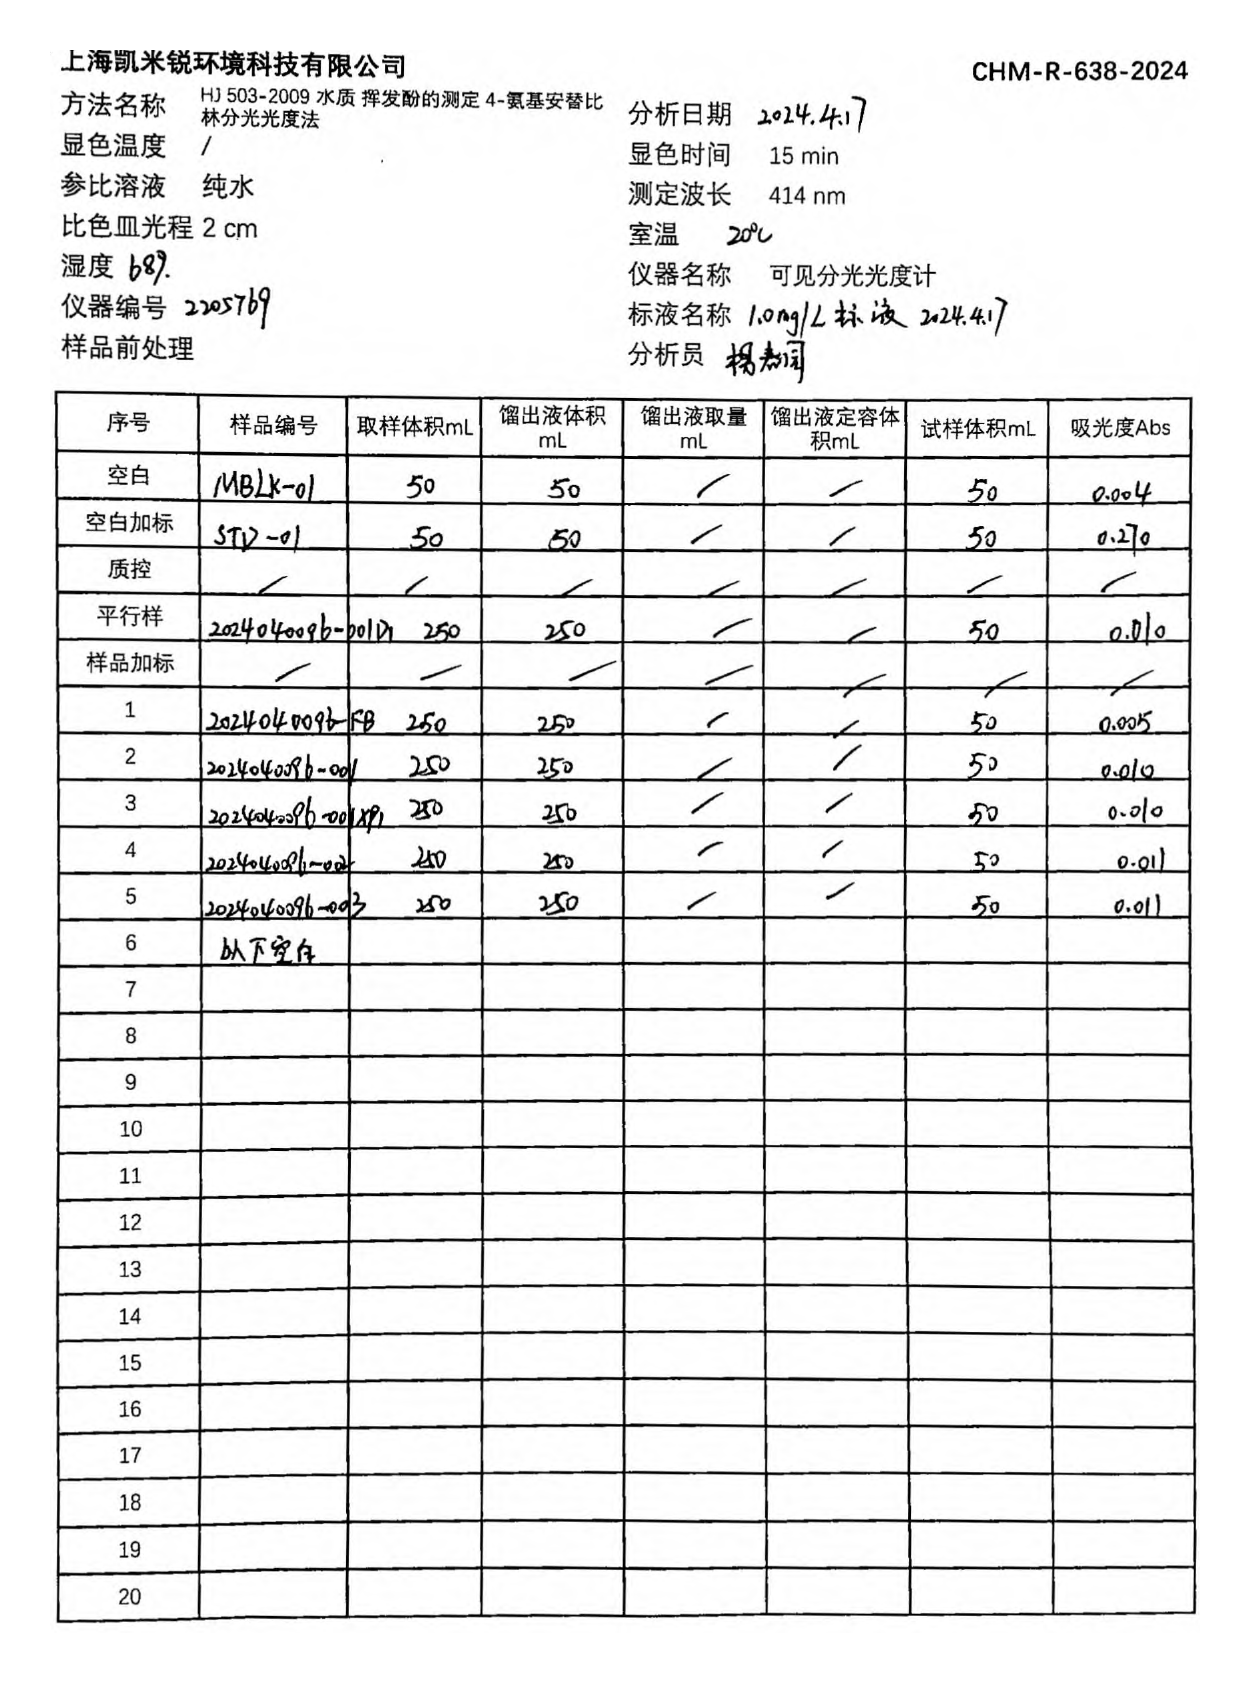 上海凯米锐环境科技有限公司
CHM-R-638-2024
方法名称 HJ 503-2009 水质 挥发酚的测定 4-氨基安替比
林分光光度法
分析日期 2024.4.17
显色温度 /
显色时间 15 min
参比溶液 纯水
测定波长 414 nm
比色皿光程 2 cm
室温 20℃
湿度 68%
仪器名称 可见分光光度计
仪器编号 2205769
标液名称 1.0mg/L 标液 2024.4.17
样品前处理
分析员
序号 样品编号 取样体积mL 馏出液体积mL 馏出液取量mL 馏出液定容体积mL 试样体积mL 吸光度Abs
空白 MBLK-01 50 50 / / 50 0.004
空白加标 STD-01 50 50 / / 50 0.270
质控 / / / / / / /
平行样 2024040096-001D1 250 250 / / 50 0.010
样品加标 / / / / / / /
1 2024040096-FB 250 250 / / 50 0.005
2 2024040096-001 250 250 / / 50 0.010
3 2024040096-001XP1 250 250 / / 50 0.010
4 2024040096-002 250 250 / / 50 0.011
5 2024040096-003 250 250 / / 50 0.011
6 以下空白
7
8
9
10
11
12
13
14
15
16
17
18
19
20